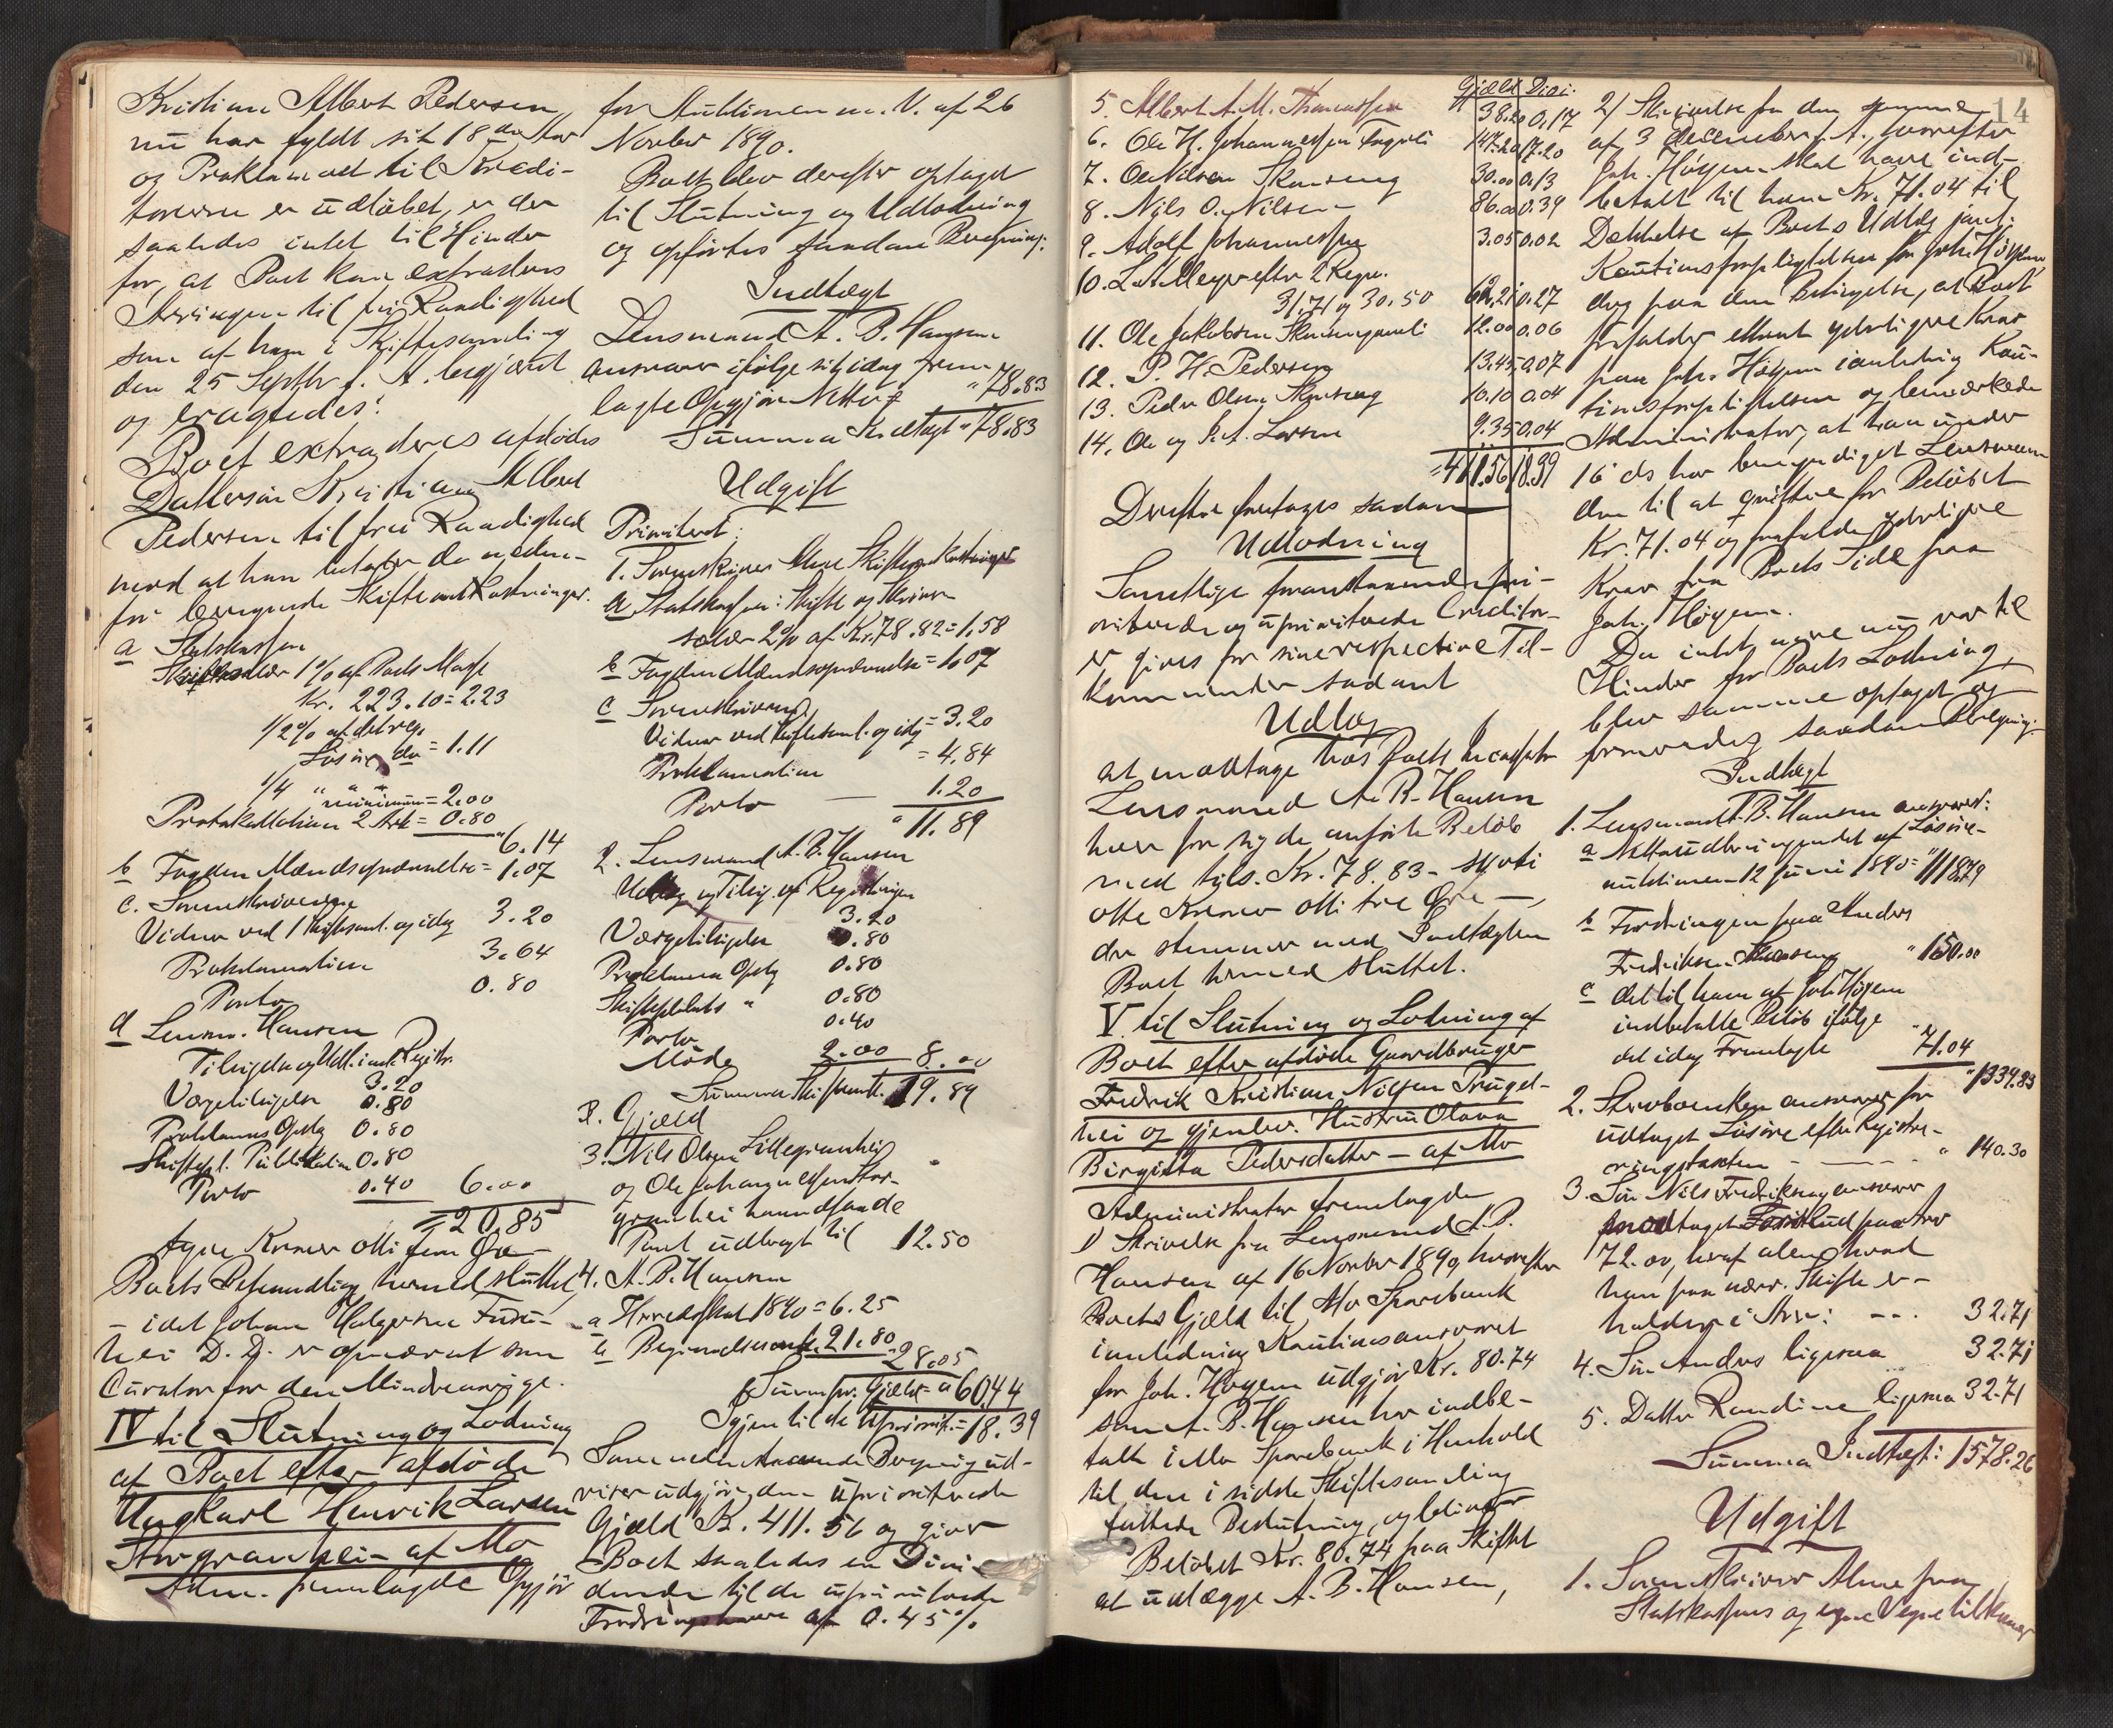 Kristian Albert Pedersen
nu har fyldt sit 18de Aar
og Proklamaet til Kredi-
torerne er udløbet, er der
saaledes intet til Hinder
for, at Boet kan extraderes
Arvingen til fri Raadighed
som af ham i Skiftesamling
den 25 Septbr f. A. begjært
og eragtedes:
Boet extraderes afdødes
Dattersøn Kristian Albert
Pedersen til fri Raadighed
mod at han betaler de neden-
for beregnede Skifteomkostninger.
a Statskassen
Skiftesalær 1% af Boets Masse
Kr. 223.10 = 2.23
1/2% af det reg.
Løsøre do = 1.11
1/4 " " "
minimum = 2.00
Protokollation 2 Ark = 0.80
" 6.14
b Fogden Mændsopnævnelse = 1.07
c. Sorenskriveren
Vidner ved 1 Skiftesaml. og idag 3.20
Proklamation 3.64
Porto 0.80
d Lensm. Hansen
Tilsigelse og Udl. i anl. Registr.
3.20
Værgetilsigelse 0.80
Proklamas Opslag 0.80
Skiftepl. Publikation 0.80
Porto 0.40 6.00
= 20.85
tyve Kroner otti fem Øre —
Boets Behandling hermed sluttet,
— idet Johan
hei D. D. er opnævnt som
Curator for den Mindreaarige.
IV til Slutning og Lodning
af Boet efter afdøde
Ungkarl Henrik Larsen
Storgranhei — af Mo
Adm. fremlagde Opgjør
for Auktionen m. V. af 26
Novbr 1890.
Boet blev derefter optaget
til Slutning og Udlodning
og opførtes saadan Beregning:
Indtægt
Lensmand A. B. Hansen
ansvarer ifølge sit idag frem
lagte Opgjør Netto " 78.83
Summa Indtægt " 78.83
Udgift
Prioritert:
1. Sorenskriver Alme Skifteomkostninger
a Statskassen: Skifte og Skriver
salær 2% af Kr. 78.82 = 1.58
b Fogden Mændsopnævnelse = 1.07
c Sorenskriveren
Vidner ved Skiftesaml. og idag = 3.20
Proklamation = 4.84
Porto — 1.20
" 11.89
2. Lensmand A. B. Hansen
Udlæg og Tilsig. af Registeringen
3.20
Værgetilsigelse 0.80
Proklama Opslag 0.80
Skifteplakats " 0.80
Porto 0.40
Møde 2.00 8.00
Summa Skifteomk. 19.89
B. Gjæld
3. Nils Olsen Lillegranhei
og Ole Johannessen Stor-
granhei haandfaaede
Pant udbragt til 12.50
4. A. B. Hansen
a Herredsskat 1890 = 6.25
b Begravelsesomk. 21.80
" 28.05
Summa pr. Gjæld = " 60.44
Igjen til de Upriorit. = 18.39
Som nedenstaaende Beregning ud-
viser udgjør den uprioriterede
Gjæld K. 411.56 og giver
Boet saaledes en Divi-
dende til de uprioriterede
Fordringshavere af 0.45%
Gjæld Divi.
5. Albert A. M. Thomassen 38.20 0.17
6. Ole H. Johannessen 147.20 17.20
7. Ole Nilsen Skonseng 30.00 0.13
8. Nils O. Nilsen 86.00 0.39
9. Adolf Johannessen 3.05 0.02
10. L. A. Meyer efter 2 Regn.
31.71 og 30.50 62.21 0.27
11. Ole Jakobsen Skonsengmoli 12.00 0.06
12. P. H. Pedersen 13.45 0.07
13. Peder Olsen Skonseng 10.10 0.04
14. Ole og P. A. Larsen 9.35 0.04
= 411.56 18.39
Derefter foretages sadan
Udlodning
Samtlige foranstaaende pri-
oriterede og uprioriterede Creditor-
er gives for sine respective Til-
kommender sadant
Udlæg
at modtage hos Boets Incassator
Lensmand A. B. Hansen
hver for sig de anførte Beløb
med tils. Kr. 78.83 — sytti
otte Kroner otti tre Øre —,
der stemmer med Indtægten
Boet hermed sluttet.
V. til Slutning og Lodning af
Boet efter afdøde Gaardbruger
Fredrik Kristian Nilsen Trugel-
hei og gjenlev. Hustru Olava
Birgitta Pedersdatter — af Mo
Administrator fremlagde
1) Skrivelse fra Lensmand A. B.
Hansen af 16 Novbr 1890, hvorefter
Boets Gjæld til Mo Sparebank
i anledning Kautionsansvaret
for Joh. Høgem udgjør Kr. 80.74
som A. B. Hansen har indbe-
talt i Mo Sparebank i Henhold
til den i sidste Skiftesamling
fattede Beslutning, og bliver
Beløbet Kr. 80.74 paa Skiftet
at udlægge A. B. Hansen,
14
2) Skrivelse fra den samme
af 3 December f. A., hvorefter
Joh. Høgem skal have ind-
betalt til ham Kr. 71.04 til
Dækkelse af Boets Udlæg
Kautionsforpligtelsen for Joh. Høgem,
dog paa den Betingelse, at Boet
frafalder ethvert yderligere Krav
paa Joh. Høgem i anledning Kau-
tionsforpligtelsen og bemærkede
Administrator, at han under
16 ds har bemyndiget Lensman-
den til at qvittere for Beløbet
Kr. 71.04 og frafalde yderligere
Krav fra Boets Side paa
Joh. Høgem.
Da intet mere nu var til
Hinder for Boets Lodning,
blev samme optaget og
foretoges saadan Beregning:
Indtægt
1. Lensmand A. B. Hansen ansvarer:
a Nettoudbringendet af Løsøre-
auktionen 12 Juni 1890 = " 1118.79
b Fordringen paa Anders
Fredriksen " 150.00
c det til ham af Joh. Høgem
indbetalte Beløb ifølge
det idag Fremlagte " 71.04
" 1339.83
2. Stervboenken ansvarer for
udtaget Løsøre efter Registre-
ringstaxten - — — " 140.30
3. Søn Nils Fredriksen ansvarer
modtaget Forskud paa Arv
72.00, hvoraf alene hvad
han paa nærv. Skifte er-
holder i Arv: - - - 32.71
4. Søn Anders ligesaa 32.71
5. Datter Randine ligesaa 32.71
Summa Indtægt: 1578.26
Udgift
1. Sorenskriver Alme paa
Statskassens og egne Vegne tilkommer